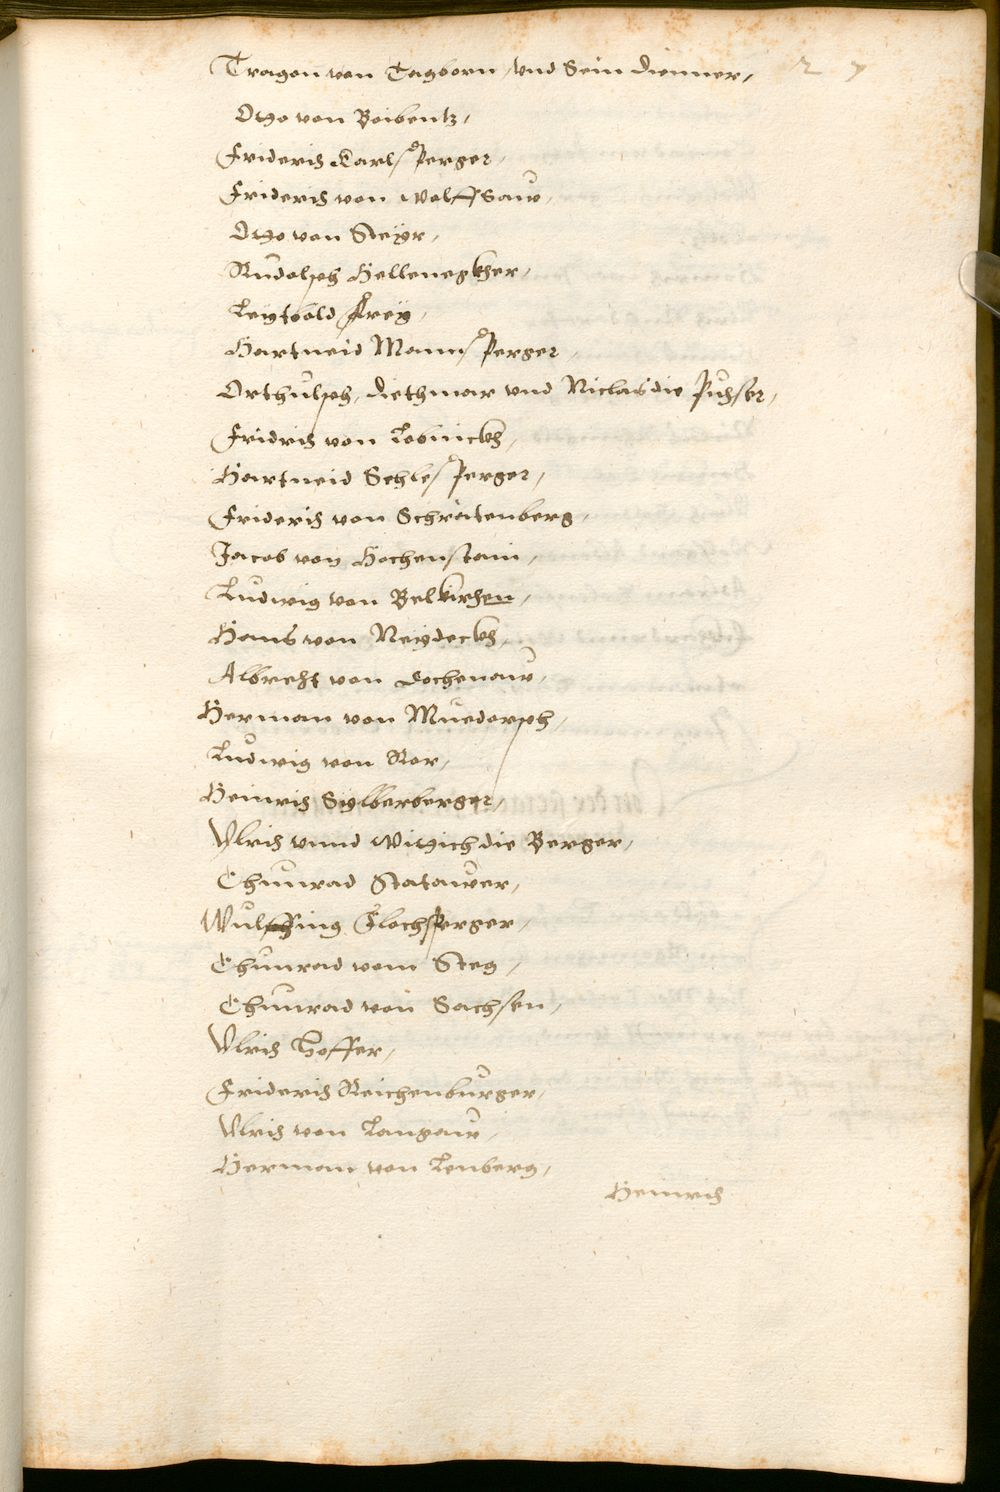 27
Tragon von Tagborn, vnd Sein dienner,
Otto von Beibentz,
Friderich Karlsperger,
Friderich von Wolfsauw,
Otto von Steyr,
Rudolph Hellenegkher,
Leytbold Frey,
Hartneid Mannsperger,
Orthulph, diethmar vnd Niclas die Puchser,
Fridrich von Lobnickh,
Hartneid Schlesperger,
Friderich von Schratenberg,
Jacob von Hochenstain,
Ludwig von Belkirchen,
Hans von Neydeckh,
Albrecht von Lochenauw,
Herman von Muedorph,
Ludwig von Ror,
Heinrich Sylberberger,
Vlrich vnnd Witzich die Berger,
Chunrad Statauer,
Wulfing Flochsperger,
Chunrad vom Steg,
Chunrad von Sachsen,
Vlrich Hoffer,
Friderich Reichenburger,
Vlrich von Langauw,
Herman von Lenberg,
Heinrich